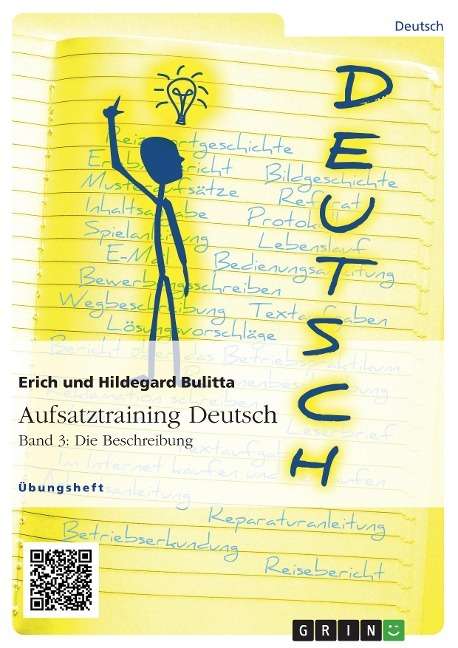 Deutsch
DEUTSCH
Reizwortgeschichte
Erlebnisbericht Bildgeschichte
Musteraufsätze Referat
Inhaltsangabe Protokoll
Spielanleitung Lebenslauf
E-Mail Bedienungsanleitung
Bewerbungsschreiben
Wegbeschreibung Textaufgaben
Lösungsvorschläge
Bericht über das Betriebspraktikum
Erich und Hildegard Bulitta
Aufsatztraining Deutsch
Band 3: Die Beschreibung
Leserbrief
Textaufgaben
Im Internet kaufen und verkaufen
Übungsheft
Reparaturanleitung
Betriebserkundung
Reisebericht
GRIN